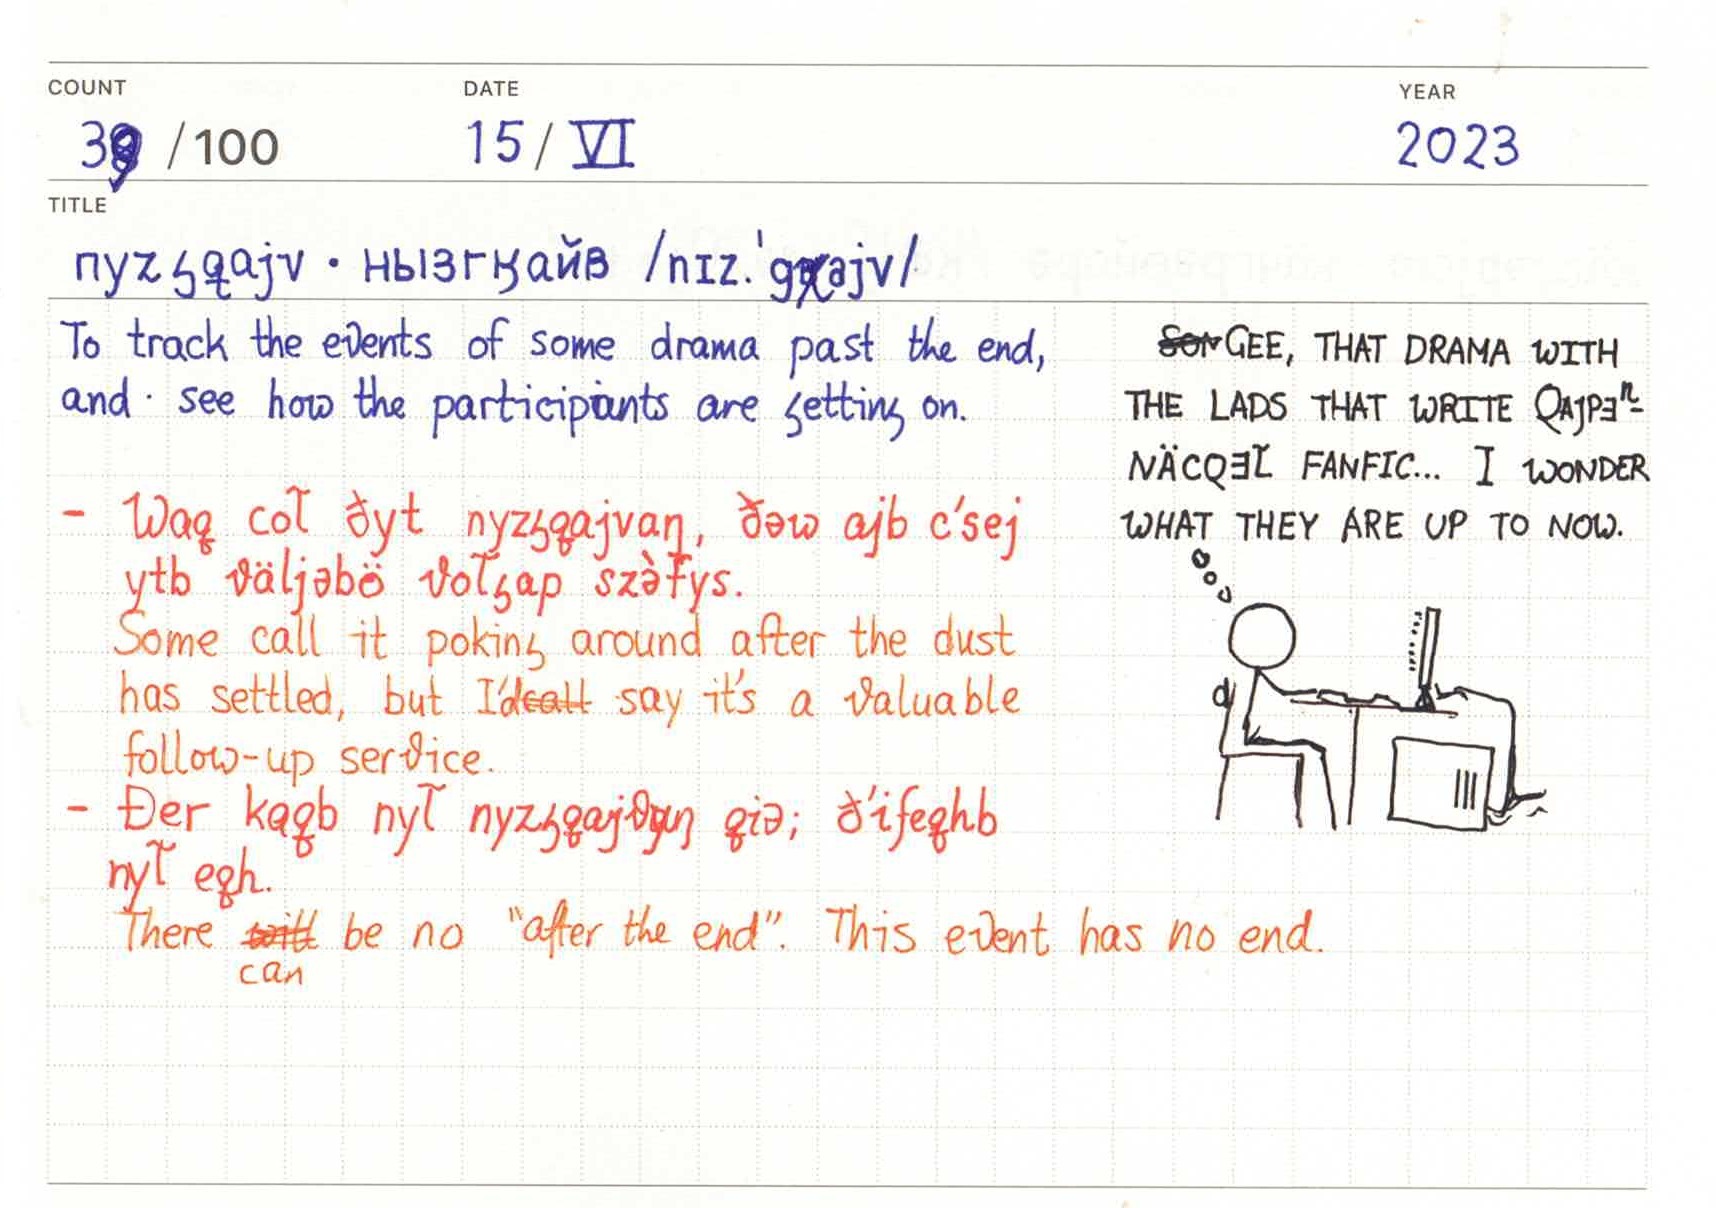 COUNT
39 /100
DATE
15/VI
YEAR
2023
TITLE
nyzgqajv · нызгӄайв /nɪz.ˈgqajv/
To track the events of some drama past the end,
and · see how the participants are getting on.
- Waq coľ ðyt nyzgqajvaŋ, ðəw ajb c'sej
ytb väljəbö voľgap szàtys.
Some call it poking around after the dust
has settled, but I'd say it's a valuable
follow-up service.
- Ðer kaqb nyľ nyzgqajvyŋ qiə; ð'ifeqhb
nyľ eqh.
There can be no "after the end". This event has no end.
GEE, THAT DRAMA WITH
THE LADS THAT WRITE QAJPƎⁿ-
NÄCQƎĽ FANFIC... I WONDER
WHAT THEY ARE UP TO NOW.